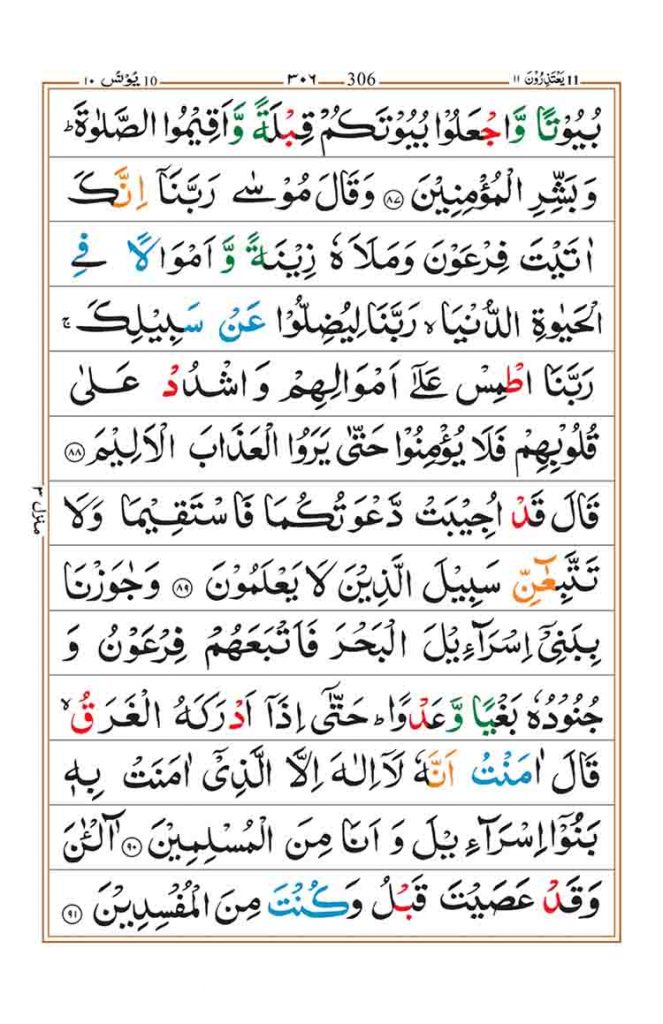 یَعْتَذِرُوْنَ 11 ١١ 306 ٣٠٦ یُوْنُس 10 ١٠
بُیُوْتًا وَّاجْعَلُوْا بُیُوْتَكُمْ قِبْلَةً وَّاَقِیْمُوا الصَّلٰوةَؕ
وَ بَشِّرِ الْمُؤْمِنِیْنَ ﴿۸۷﴾ وَقَالَ مُوْسٰی رَبَّنَاۤ اِنَّكَ
اٰتَیْتَ فِرْعَوْنَ وَمَلَاَهٗ زِیْنَةً وَّ اَمْوَالًا فِی
الْحَیٰوةِ الدُّنْیَا ۙ رَبَّنَا لِیُضِلُّوْا عَنْ سَبِیْلِكَ ۚ
رَبَّنَا اطْمِسْ عَلٰۤی اَمْوَالِهِمْ وَاشْدُدْ عَلٰی
قُلُوْبِهِمْ فَلَا یُؤْمِنُوْا حَتّٰی یَرَوُا الْعَذَابَ الْاَلِیْمَ ﴿۸۸﴾
قَالَ قَدْ اُجِیْبَتْ دَّعْوَتُكُمَا فَاسْتَقِیْمَا وَلَا
تَتَّبِعٰٓنِّ سَبِیْلَ الَّذِیْنَ لَا یَعْلَمُوْنَ ﴿۸۹﴾ وَجٰوَزْنَا
بِبَنِیْۤ اِسْرَآءِیْلَ الْبَحْرَ فَاَتْبَعَهُمْ فِرْعَوْنُ وَ
جُنُوْدُهٗ بَغْیًا وَّعَدْوًاؕ حَتّٰۤی اِذَاۤ اَدْرَكَهُ الْغَرَقُ ۙ
قَالَ اٰمَنْتُ اَنَّهٗ لَاۤ اِلٰهَ اِلَّا الَّذِیْۤ اٰمَنَتْ بِهٖ
بَنُوْۤا اِسْرَآءِیْلَ وَ اَنَا مِنَ الْمُسْلِمِیْنَ ﴿۹۰﴾ آٰلْـٰٔنَ
وَقَدْ عَصَیْتَ قَبْلُ وَكُنْتَ مِنَ الْمُفْسِدِیْنَ ﴿۹۱﴾
منزل ٣